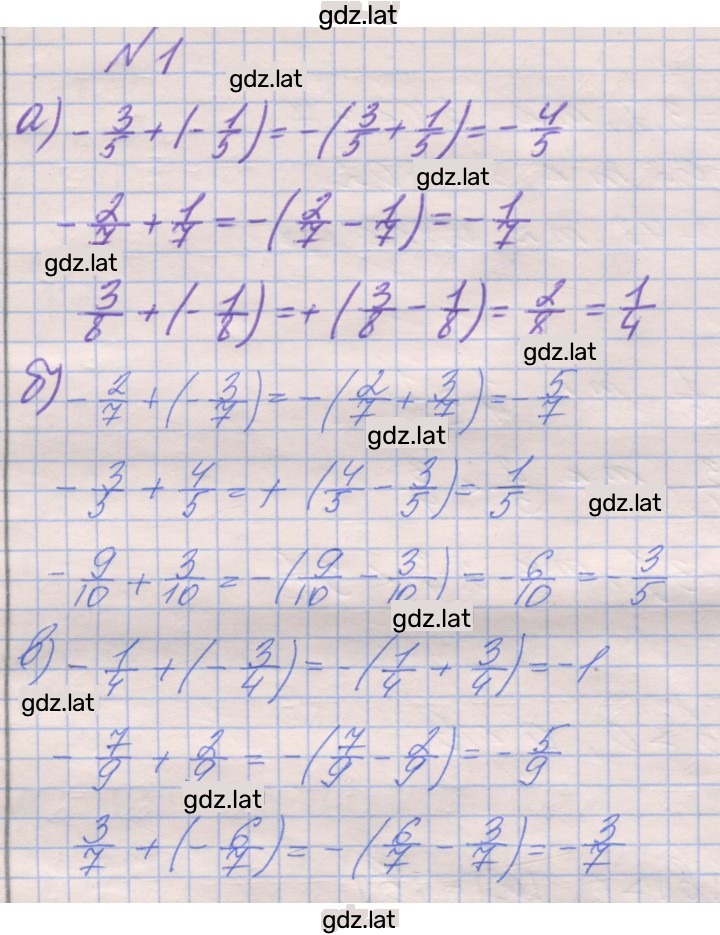 gdz.lat
№1
gdz.lat
а) - 3/5 + (- 1/5) = - (3/5 + 1/5) = - 4/5
gdz.lat
- 2/7 + 1/7 = - (2/7 - 1/7) = - 1/7
gdz.lat
3/8 + (- 1/8) = + (3/8 - 1/8) = 2/8 = 1/4
gdz.lat
б) - 2/7 + (- 3/7) = - (2/7 + 3/7) = - 5/7
gdz.lat
- 3/5 + 4/5 = + (4/5 - 3/5) = 1/5
gdz.lat
- 9/10 + 3/10 = - (9/10 - 3/10) = - 6/10 = - 3/5
gdz.lat
в) - 1/4 + (- 3/4) = - (1/4 + 3/4) = - 1.
gdz.lat
- 7/9 + 2/9 = - (7/9 - 2/9) = - 5/9
gdz.lat
3/7 + (- 6/7) = - (6/7 - 3/7) = - 3/7
gdz.lat